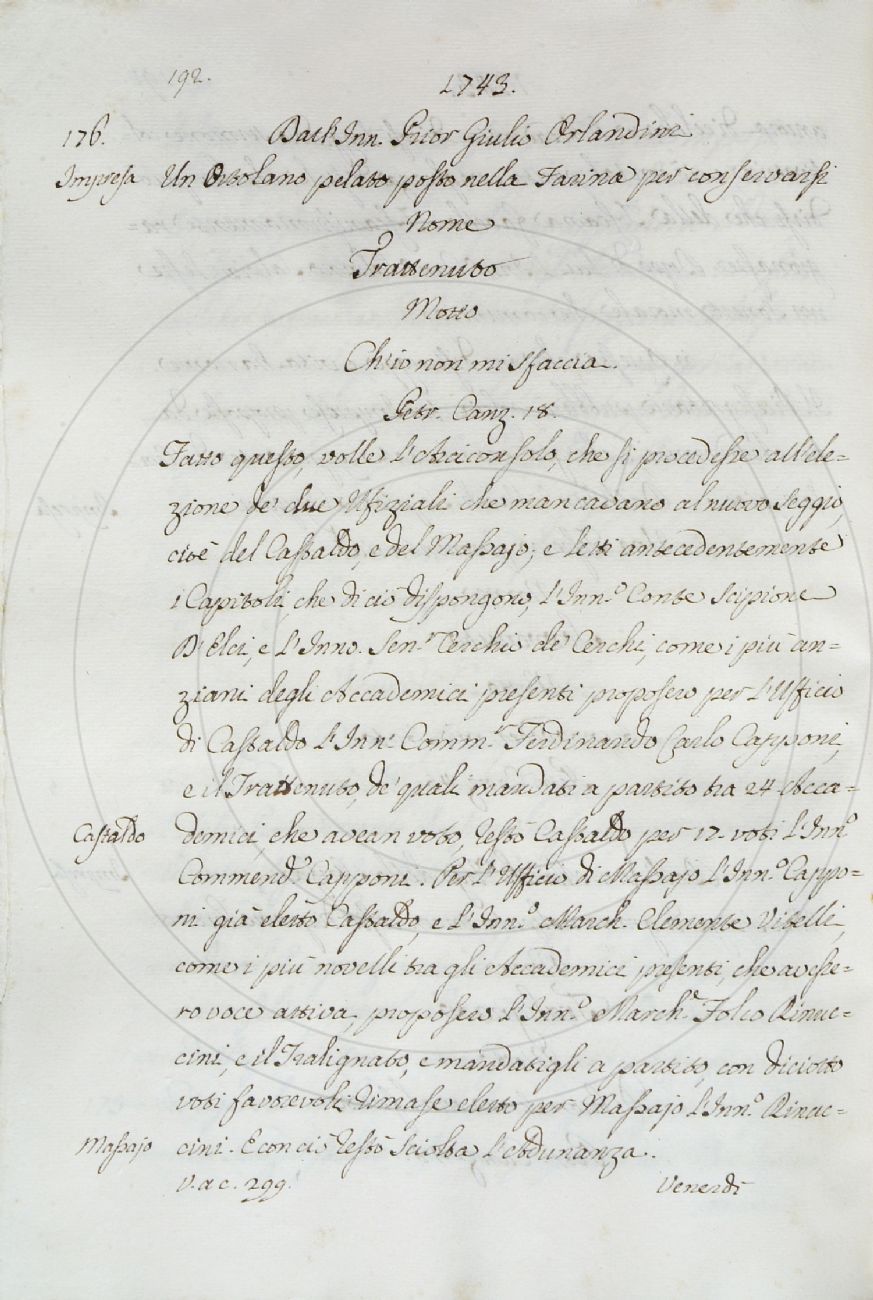 192.
1743.
176.
Dall Inn. Prior Giulio Orlandini
Impresa Un Ortolano pelato posto nella Farina per conservarsi
Nome
Trattenuto
Motto
Ch'io non mi sfaccia.
Petr. Canz. 18.
Fatto questo, volle l'Arciconsolo, che si procedesse all'ele=
zione de' due Ufiziali che mancavano al nuovo Seggio,
cioè del Castaldo, e del Massajo; e letti antecedentemente
i Capitoli, che di ciò dispongono, l'Inn.º Conte Scipione
D'Elci, e l'Inno. Sen.r Cerchio de' Cerchi, come i più an=
ziani degli Accademici presenti proposero per l'Ufficio
di Castaldo l'Inn.º Comm.r Ferdinando Carlo Capponi,
e il Trattenuto, de' quali mandati a partito tra 24 Acca=
Castaldo demici, che avean voto, restò Castaldo per 17. voti l'Inn.º
Commend.r Capponi. Per l'Ufficio di Massajo l'Inn.º Cappo=
ni già eletto Castaldo, e l'Inn.º March. Clemente Vitelli,
come i più novelli tra gli Accademici presenti, che avesse=
ro voce attiva, proposero l'Inn.º March.e Folco Rinuc=
cini, e il Tralignato, e mandatigli a partito, con diciotto
voti favorevoli rimase eletto per Massajo l'Inn.º Rinuc=
Massajo cini. E con ciò restò sciolta l'Adunanza.
V. a c. 299.
Venerdì